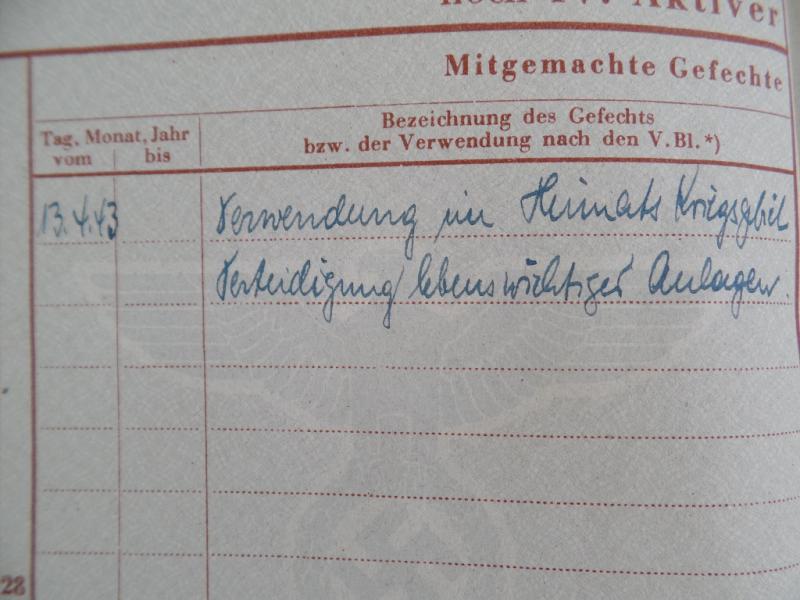 noch IV. Aktiver
Mitgemachte Gefechte
Tag, Monat, Jahr
vom bis
Bezeichnung des Gefechts
bzw. der Verwendung nach den V.Bl.*)
13.4.43 Verwendung im Heimats Kriegsgebiet
Verteidigung lebenswichtiger Anlagen.
28